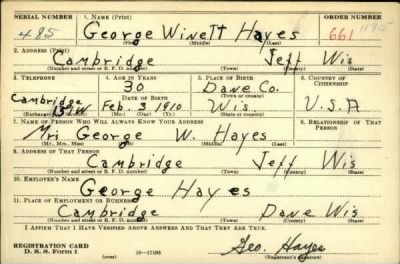 SERIAL NUMBER 1. NAME (Print) ORDER NUMBER
485 George Winett Hayes 661 1195
(First) (Middle) (Last)
2. ADDRESS (Print)
Cambridge Jeff Wis
(Number and street or R. F. D. number) (Town) (County) (State)
3. TELEPHONE 4. AGE IN YEARS 5. PLACE OF BIRTH 6. COUNTRY OF CITIZENSHIP
30 Dane Co.
Cambridge DATE OF BIRTH (Town or county)
Feb. 3 1910 Wis U.S.A
(Exchange) (Number) (Mo.) (Day) (Yr.) (State or country)
7. NAME OF PERSON WHO WILL ALWAYS KNOW YOUR ADDRESS 8. RELATIONSHIP OF THAT PERSON
Mrs George W. Hayes
(Mr., Mrs., Miss) (First) (Middle) (Last)
9. ADDRESS OF THAT PERSON
Cambridge Jeff Wis
(Number and street or R. F. D. number) (Town) (County) (State)
10. EMPLOYER'S NAME
George Hayes
11. PLACE OF EMPLOYMENT OR BUSINESS
Cambridge Dane Wis
(Number and street or R. F. D. number) (Town) (County) (State)
I AFFIRM THAT I HAVE VERIFIED ABOVE ANSWERS AND THAT THEY ARE TRUE.
REGISTRATION CARD Geo. Hayes
D. S. S. Form 1 (over) 16—17105 (Registrant's signature)